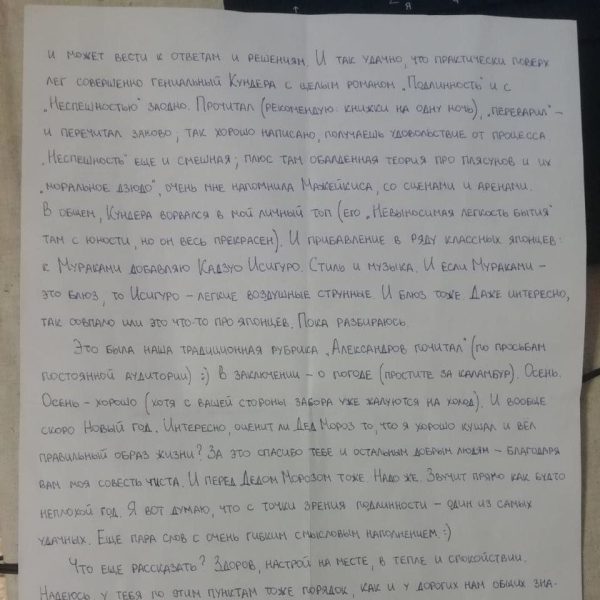 и может вести к ответам и решениям. И так удачно, что практически поверх
лег совершенно гениальный Кундера с целым романом „Подлинность" и с
„Неспешностью" заодно. Прочитал (рекомендую: книжки на одну ночь), „переварил" –
и перечитал заново; так хорошо написано, получаешь удовольствие от процесса
„Неспешность" еще и смешная; плюс там обалденная теория про плясунов и их
„моральное дзюдо", очень мне напомнила Мажейкиса, со сценами и аренами.
В общем, Кундера ворвался в мой личный топ (его „Невыносимая легкость бытия"
там с юности, но он весь прекрасен). И прибавление в ряду классных японцев:
к Мураками добавляю Кадзуо Исигуро. Стиль и музыка. И если Мураками –
это блюз, то Исигуро – легкие воздушные струнные. И блюз тоже. Даже интересно,
так совпало или это что-то про японцев. Пока разбираюсь.
Это была наша традиционная рубрика „Александров почитал" (по просьбам
постоянной аудитории) :) В заключении – о погоде (простите за каламбур). Осень.
Осень – хорошо (хотя с вашей стороны забора уже жалуются на холод). И вообще
скоро Новый год. Интересно, оценит ли Дед Мороз то, что я хорошо кушал и вёл
правильный образ жизни? За это спасибо тебе и остальным добрым людям – благодаря
вам моя совесть чиста. И перед Дедом Морозом тоже. Надо же. Звучит прямо как будто
неплохой год. Я вот думаю, что с точки зрения подлинности – один из самых
удачных. Еще пара слов с очень гибким смысловым наполнением. :)
Что еще рассказать? Здоров, настрой на месте, в тепле и спокойствии.
Надеюсь, у тебя по этим пунктам тоже порядок, как и у дорогих нам общих зна-